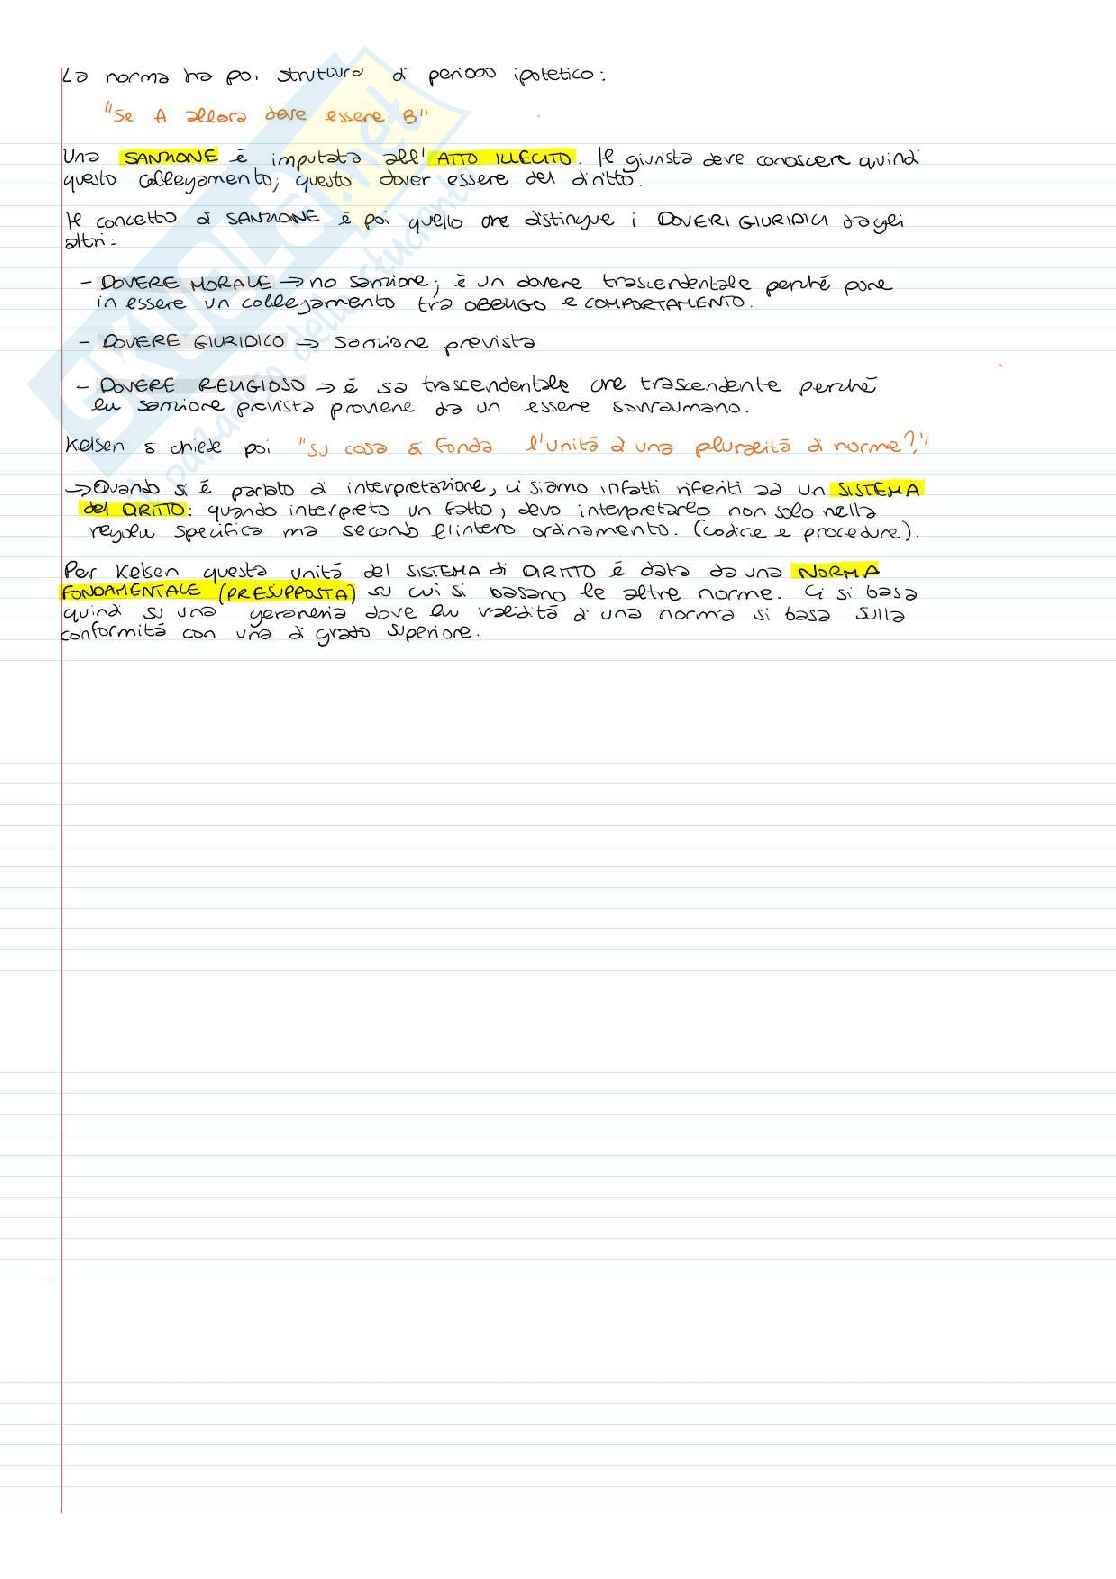 La norma ha poi struttura di periodo ipotetico:
"Se A allora deve essere B"
Una SANZIONE è imputata all'ATTO ILLECITO. Il giurista deve conoscere quindi
questo collegamento; questo dover essere del diritto.
Il concetto di SANZIONE è poi quello che distingue i DOVERI GIURIDICI dagli
altri.
- DOVERE MORALE → no sanzione; è un dovere trascendentale perché pone
in essere un collegamento tra OBBLIGO e COMPORTAMENTO.
- DOVERE GIURIDICO → sanzione prevista
- DOVERE RELIGIOSO → è sia trascendentale che trascendente perché
la sanzione prevista proviene da un essere sovraumano.
Kelsen si chiede poi "su cosa si fonda l'unità di una pluralità di norme?"
→ Quando si è parlato di interpretazione, ci siamo infatti riferiti ad un SISTEMA
del DIRITTO: quando interpreto un fatto, devo interpretarlo non solo nella
regola specifica ma secondo l'intero ordinamento. (codice e procedure).
Per Kelsen questa unità del SISTEMA di DIRITTO è data da una NORMA
FONDAMENTALE (PRESUPPOSTA) su cui si basano le altre norme. Ci si basa
quindi su una gerarchia dove la validità di una norma si basa sulla
conformità con una di grado superiore.
SKUOLA.net